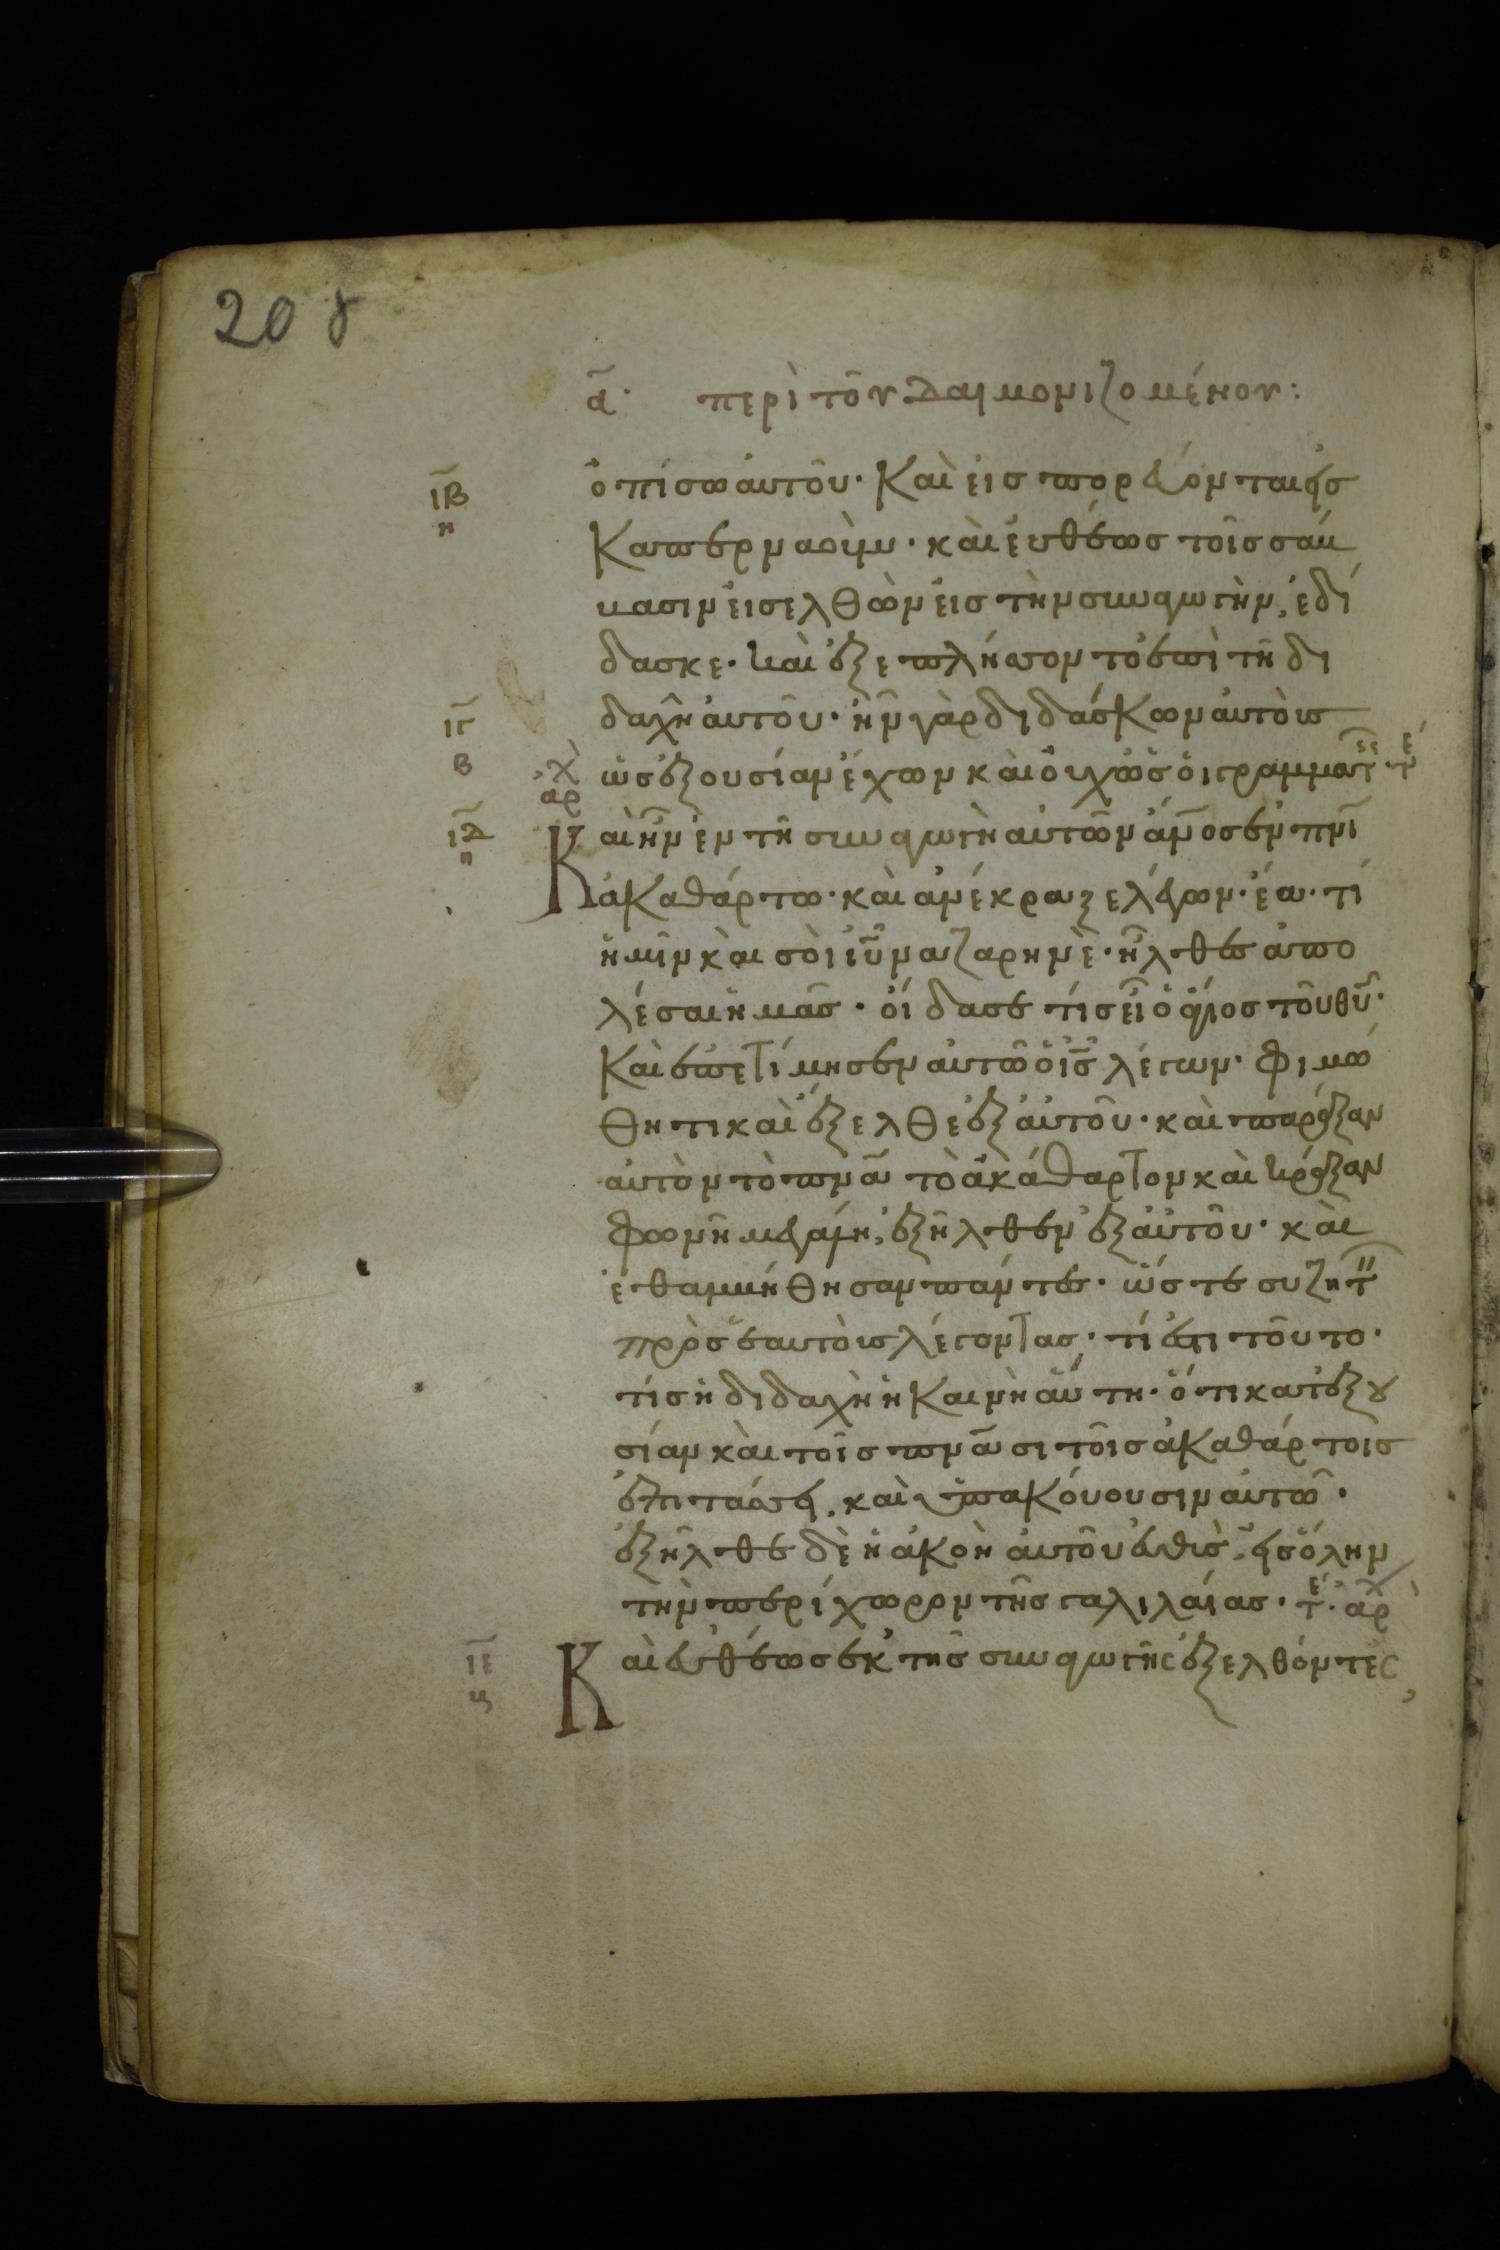 208
α̅· περὶ τοῦ δαιμονιζομένου:
ι̅β̅ ὀπίσω ἀυτοῦ· Καὶ ἐισπορεύονται εἰς
η Καπερναοὺμ· καὶ ἐυθέως τοῖς σάβ
βασιν ἐισελθὼν ἐις τὴν συναγωγὴν, ἐδί
δασκε· καὶ ἐξεπλήσσοντο ἐπὶ τῆ δι
ι̅γ̅ δαχῆ ἀυτοῦ· ἦν γὰρ διδάσκων ἀυτοὺς
β ἀρχ ὡς ἐξουσίαν ἔχων καὶ ὀυχ ὡς ὁι γραμματεῖς· τέ
ι̅δ̅ Καὶ ἦν ἐν τῆ συναγωγῆ αὐτῶν ἀν̅ος ἐν πν̅ι
η ἀκαθάρτω· καὶ ἀνέκραξε λέγων· ἔα· τί
ἡμῖν καὶ σοὶ ἰυ̅ ναζαρηνὲ· ἦλθες ἀπο
λέσαι ἡμᾶς· ὀίδα σε τίς εἶ ὁ ἅγιος τοῦ θυ̅·
Καὶ ἐπετίμησεν αυτῶ ὁ ι̅ς̅ λέγων· φιμώ
θητι καὶ ἔξελθε ἐξ ἀυτοῦ· καὶ σπαράξαν
ἀυτὸν τὸ πνα̅ τὸ ἀκάθαρτον καὶ κράξαν
φωνῆ μεγάλη, ἐξῆλθεν ἐξ ἀυτοῦ· καὶ
ἐθαμβήθησαν πάντες· ὥστε συζητ
πρὸς ἑαυτοὺς λέγοντας· τί ἐστι τοῦτο·
τίς ἡ διδαχὴ ἡ Καινὴ ἅυτη· ὅτι κατ ἐξȣ
σίαν καὶ τοῖς πνα̅σι τοῖς ἀκαθάρτοις
ἐπιτάσσει, καὶ ὑπακόυουσιν ἀυτῶ·
ἐξῆλθε δὲ ἡ ἀκοὴ ἀυτοῦ ἐυθὺς εἰς ὅλην
τὴν περίχωρον τῆς γαλιλάιας· τέ· ἀρχ
ι̅ε̅ Καὶ ἐυθέως ἐκ τῆς συναγωγῆς ἐξελθόντες
ς